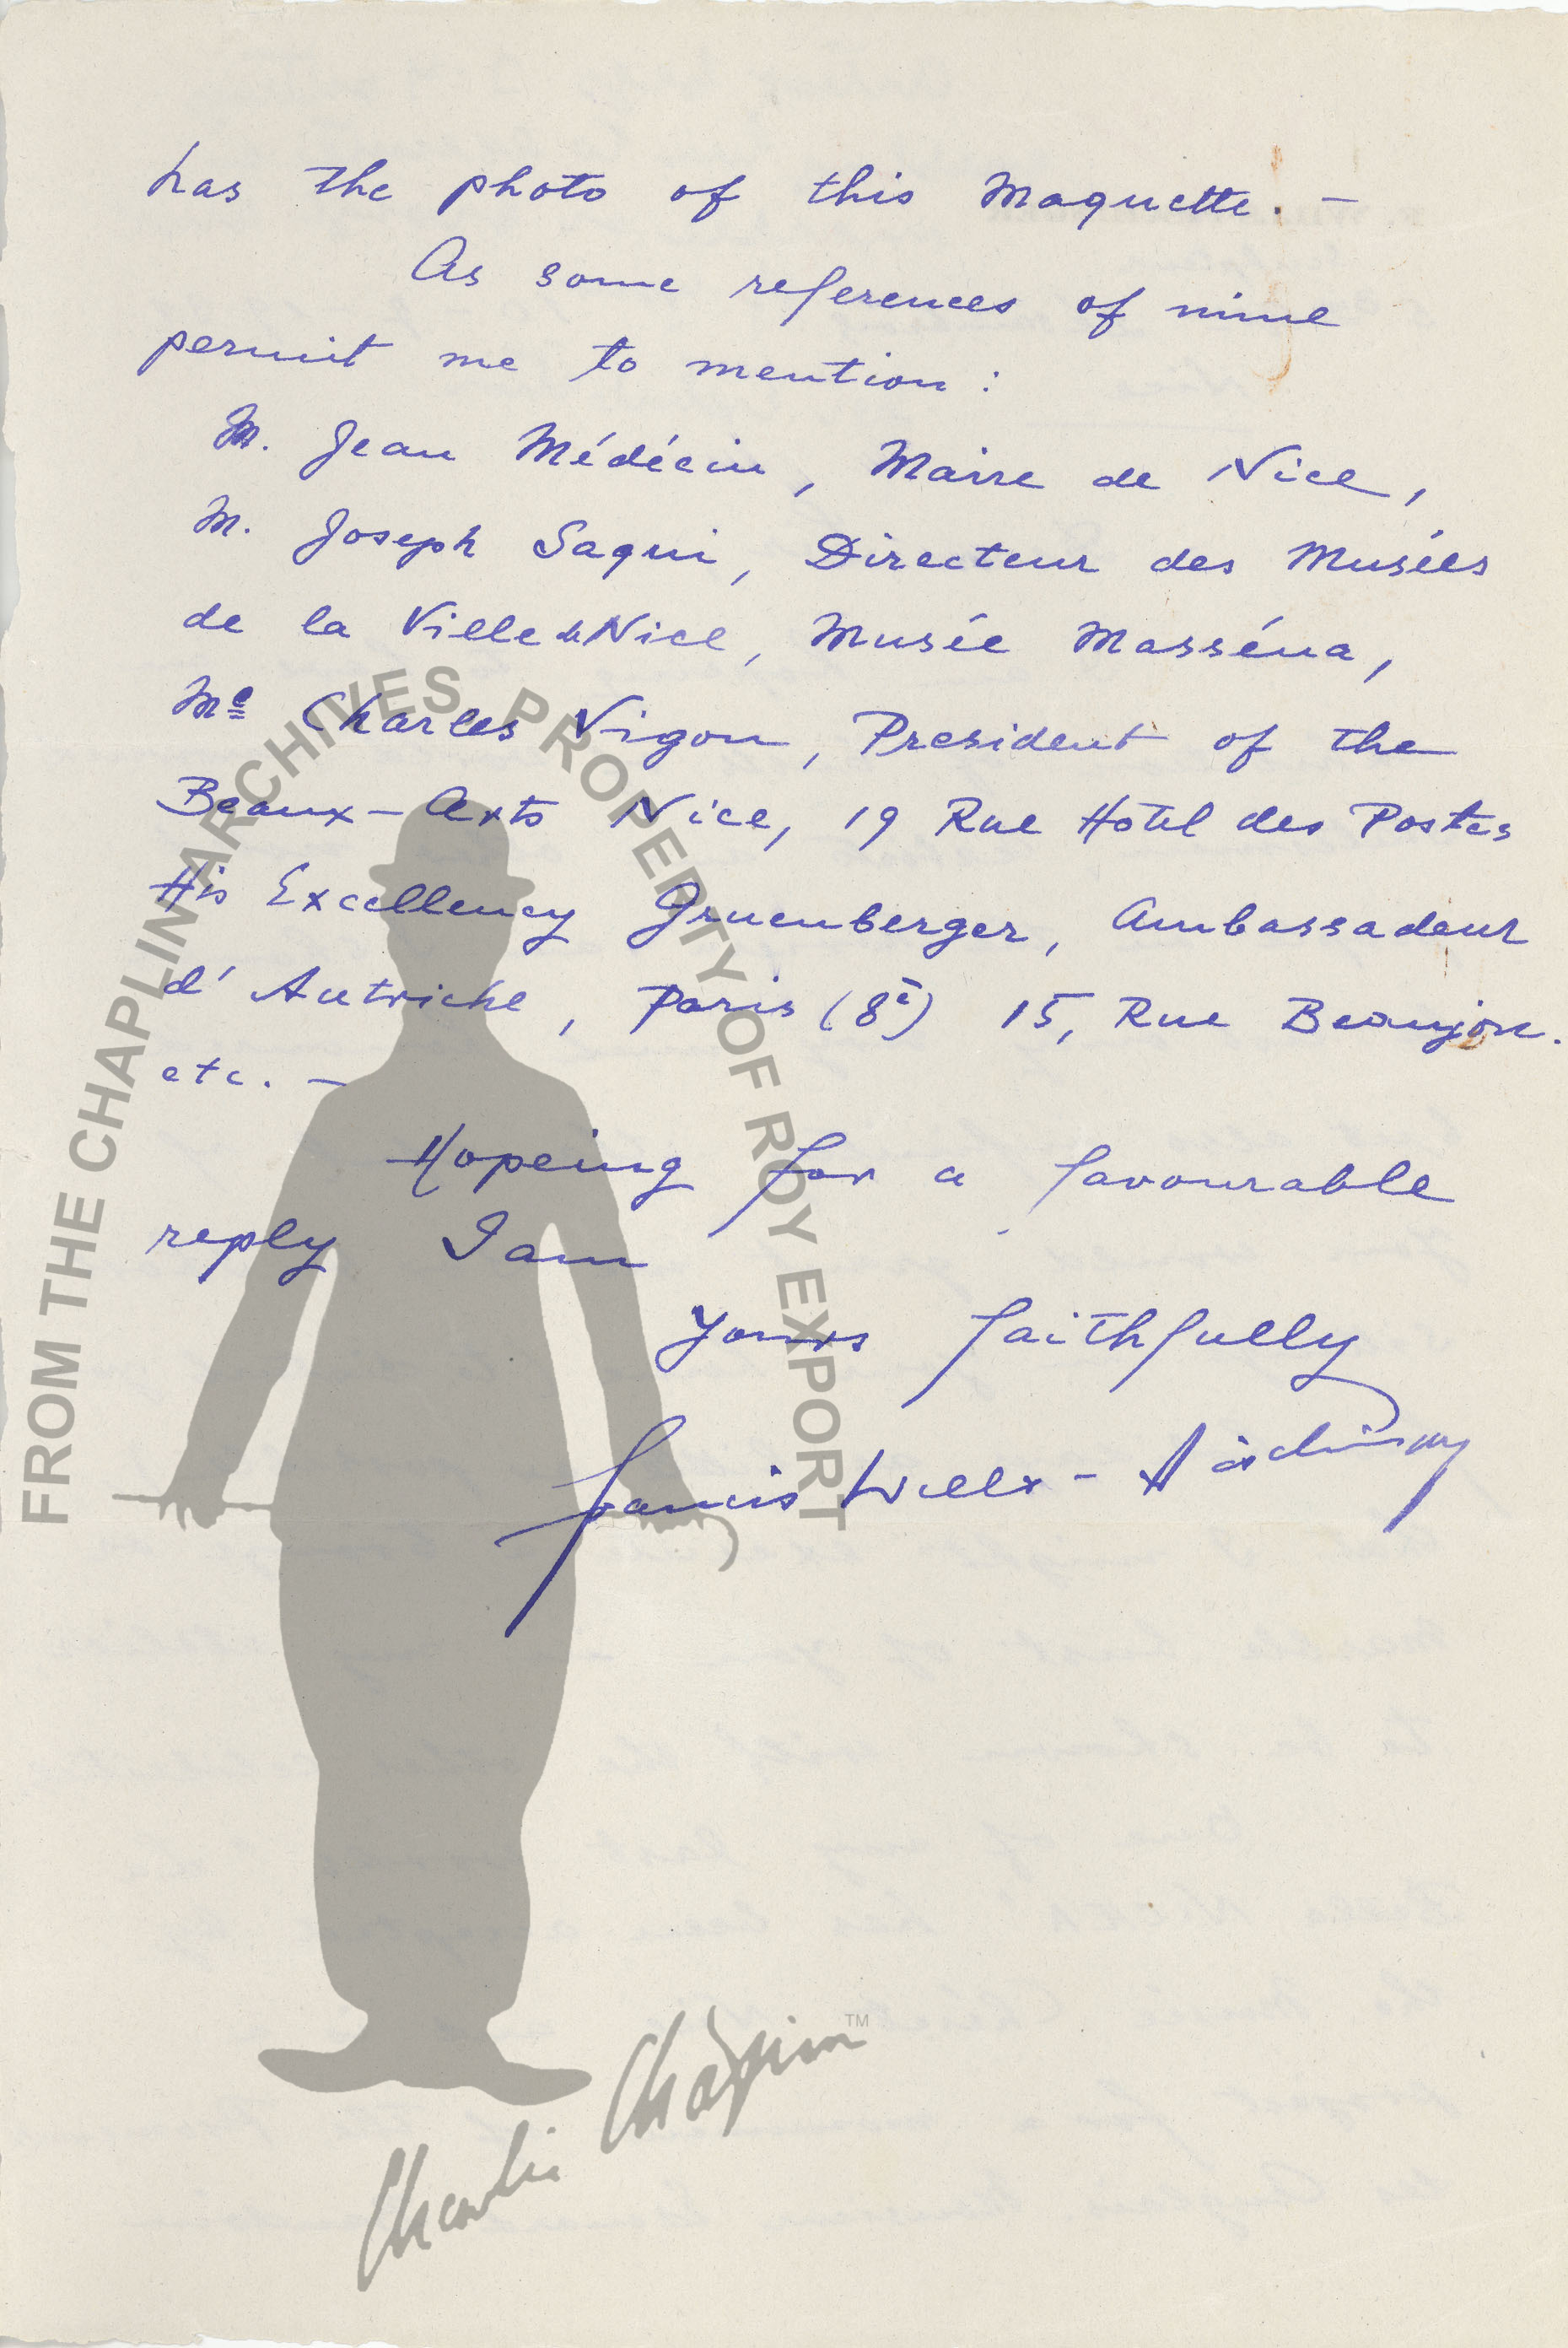 has the photo of this Maquette. –
As some references of mine
permit me to mention :
M. Jean Médécin, Maire de Nice,
M. Joseph Saqui, Directeur des Musées
de la Ville de Nice, Musée Masséna,
Me Charles Vigon, President of the
Beaux-Arts Nice, 19 Rue Hôtel des Postes
His Excellency Gruenberger, Ambassadeur
d'Autriche, Paris (8è) 15, Rue Beaujon.
etc. –
Hopeing for a favourable
reply I am
Yours faithfully
Francis
FROM THE CHAPLIN ARCHIVES PROPERTY OF ROY EXPORT
Charlie Chaplin TM